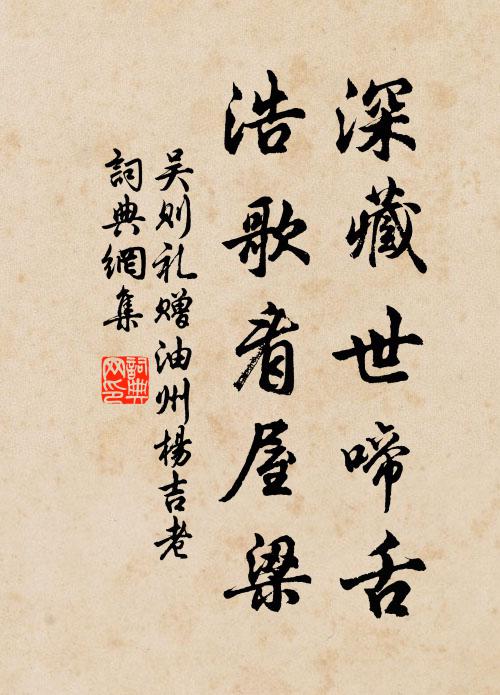 深藏世啼舌
浩歌看屋梁
吴则礼赠油州楊吉老
詞典網集
詞典網印